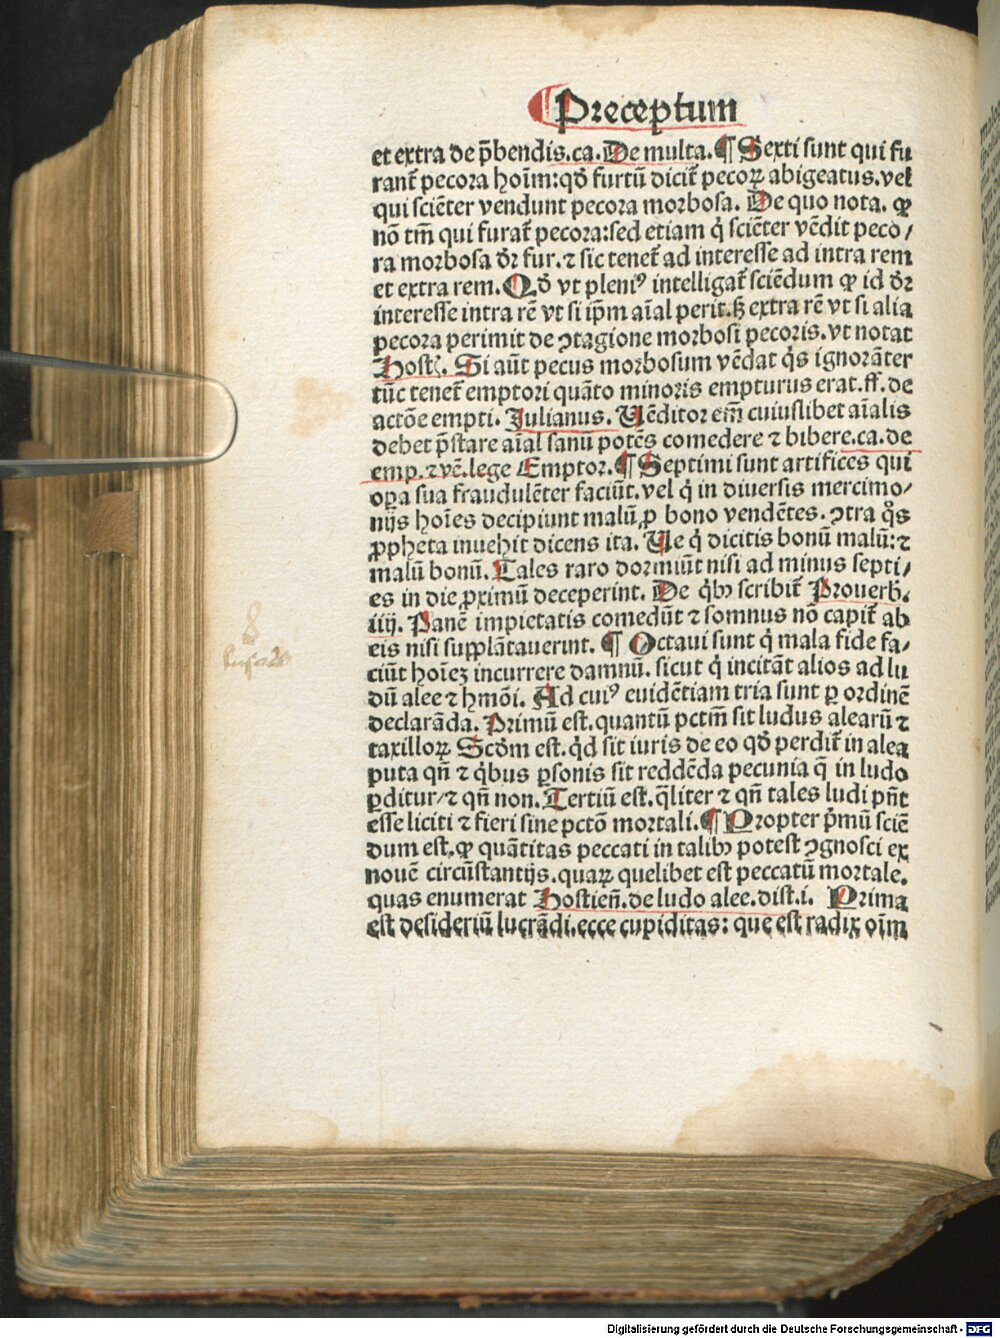 ¶ Preceptum
et extra de p̄bendis.ca. De multa. ¶ Sexti sunt qui fu
rant̄ pecora hoīm: qđ furtū dicit̄ pecoꝝ abigeatus. vel
qui sciēter vendunt pecora morbosa. De quo nota. ꝙ
nō tm̄ qui furat̄ pecora: sed etiam q̇ sciēter vēdit peco/
ra morbosa dr̄ fur. ⁊ sic tenet̄ ad interesse ad intra rem
et extra rem. Qđ vt pleniꝰ intelligat̄ sciēdum ꝙ id dr̄
interesse intra rē vt si ip̄m aīal perit. sꝫ extra rē vt si alia
pecora perimit de ꝯtagione morbosi pecoris. vt notat
Host. Si aūt pecus morbosum vēdat q̇s ignorāter
tūc tenet̄ emptori quāto minoris empturus erat. ff. de
actōe empti. Julianus. Uēditor em̄ cuiuslibet aīalis
debet p̄stare aīal sanū potēs comedere ⁊ bibere. ca. de
emp. ⁊ vē. lege Emptor. ¶ Septimi sunt artifices qui
oꝑa sua fraudulēter faciūt. vel q̇ in diuersis mercimo/
nijs hoīes decipiunt malū ꝓ bono vendētes. ꝯtra q̊s
ꝓpheta inuehit dicens ita. Ue q̇ dicitis bonū malū: ⁊
malū bonū. Tales raro dormiūt nisi ad minus septi/
es in die ꝓximū deceperint. De q̇bꝰ scribit̄ Prouerb.
iiij. Panē impietatis comedūt ⁊ somnus nō capit̄ ab
eis nisi supplātauerint. ¶ Octaui sunt q̇ mala fide fa/
ciūt hoīeꝫ incurrere damnū. sicut q̇ incitāt alios ad lu
dū alee ⁊ hmōi. Ad cuiꝰ euidētiam tria sunt ꝑ ordinē
declarāda. Primū est. quantū pctm̄ sit ludus alearū ⁊
taxilloꝝ Scđm est. q̇d sit iuris de eo qđ perdit̄ in alea
puta qn̄ ⁊ q̇bus ꝑsonis sit reddēda pecunia q̄ in ludo
ꝑditur/ ⁊ qn̄ non. Tertiū est. q̄liter ⁊ qn̄ tales ludi pn̄t
esse liciti ⁊ fieri sine pctō mortali. ¶ Propter p̄mū sciē
dum est. ꝙ quātitas peccati in talibꝰ potest ꝯgnosci ex
nouē circūstantijs. quaꝝ quelibet est peccatū mortale.
quas enumerat Hostien̄. de ludo alee. dist. i. Prima
est desideriū lucrādi. ecce cupiditas: que est radix oīm
8
Digitalisierung gefördert durch die Deutsche Forschungsgemeinschaft - DFG